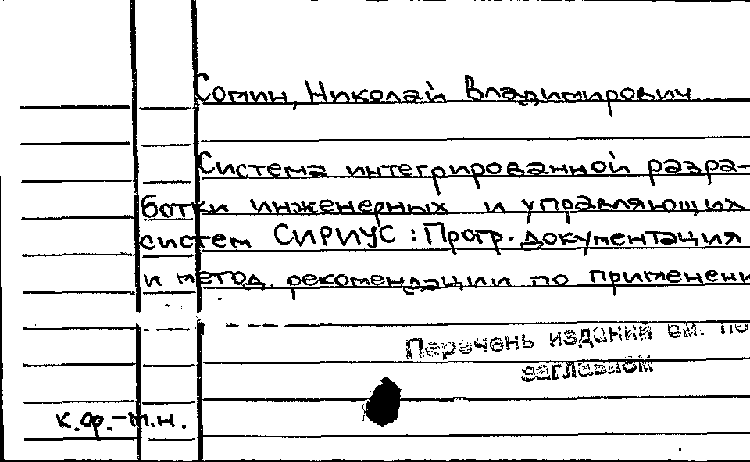 Сомин, Николай Владимирович
Система интегрированной разра-
ботки инженерных и управляющих
систем СИРИУС : Прогр. документация
и метод. рекомендации по применени
Перечень изданий см. по
заглавием
к.ф.-м.н.